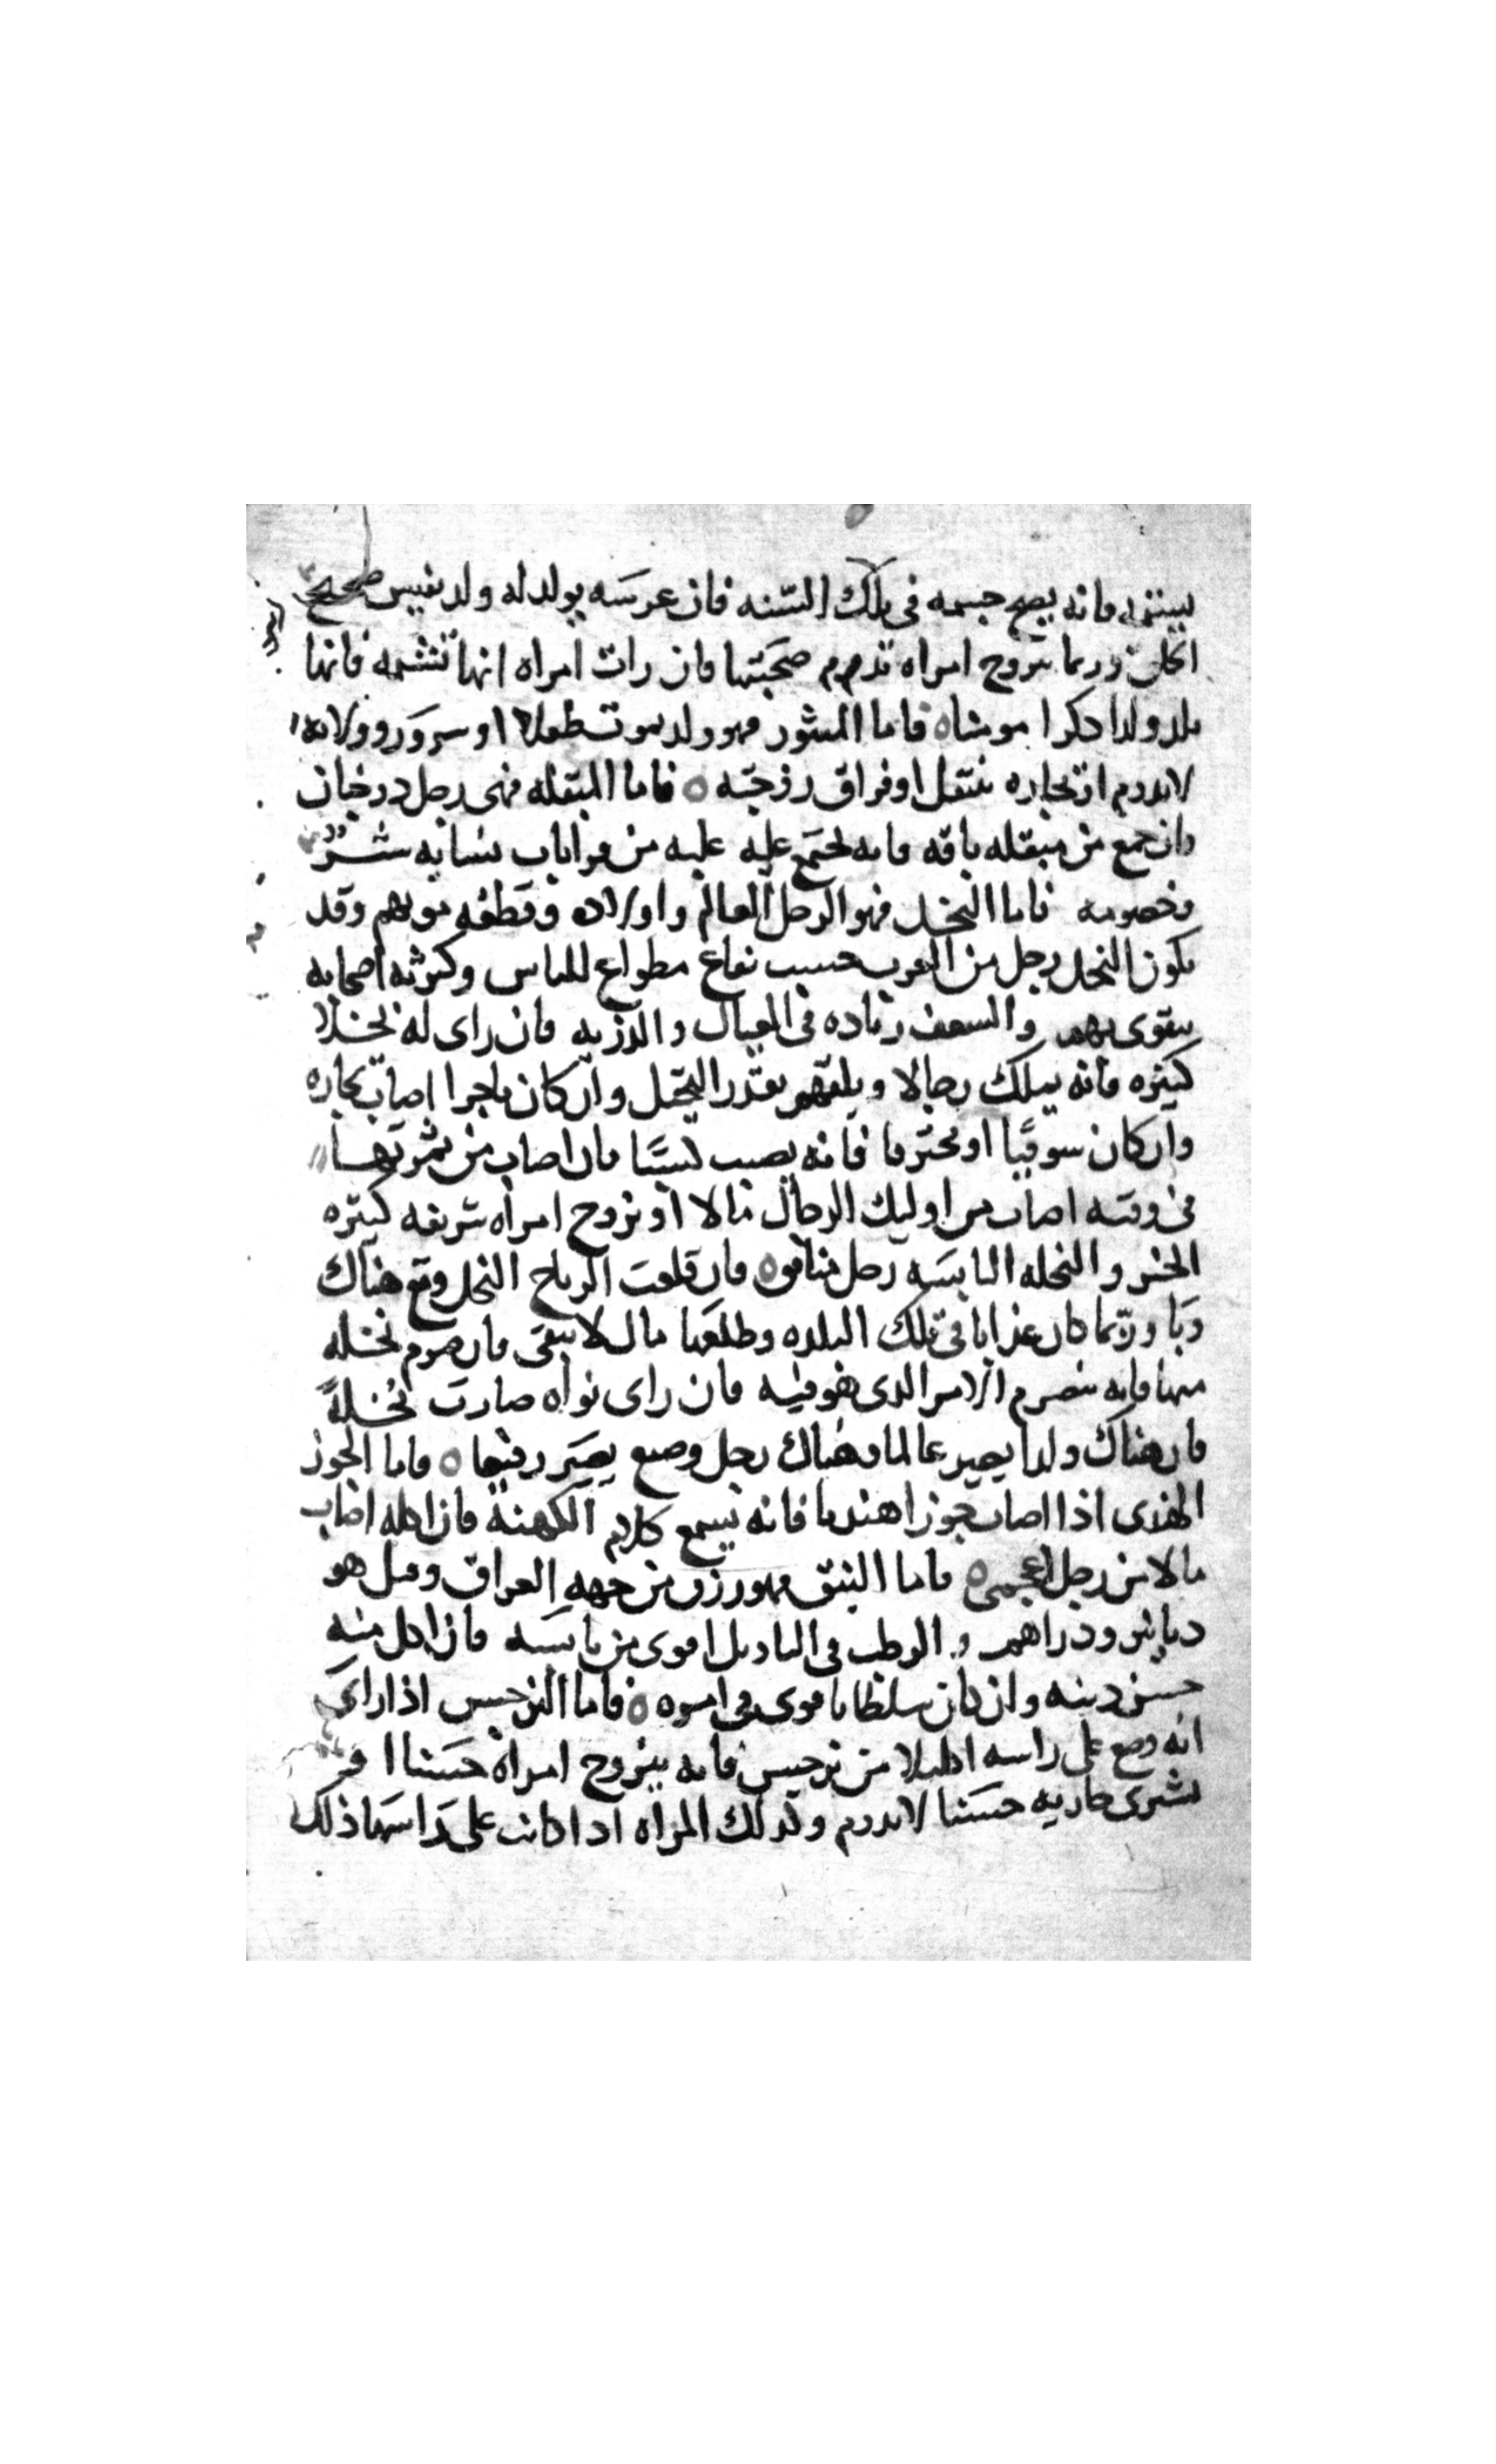 يستنزه فانه يصح جسمه في تلك السنه فان عرسه يولد له ولد نفيس صحيح
وربما تزوج امراه تدوم صحبتها فان رات امراه انها تشمه فانها
تلد ولدا ذكرا فاما المنثور فهو ولد يموت طفلا او سرور وولايه
لا تدوم او تجاره تنتقل او فراق زوجته ○ فاما المبقله فهي رجل
وان جمع من مبقله باقه فانه يجتمع عليه عليه من قرابات نسايه شر
وخصومه فاما النخل فهو الرجل العالم واولاده وقطعه موتهم وقد
يكون النخل رجل من العرب حسيب نفاع مطواع للناس وكثرته اصحابه
يتقوى بهم والسعف زياده في العيال والذريه فان راى له نخلا
كثيره فانه يملك رجالا بقدر النخل وان كان تاجرا اصاب تجاره
وان كان سوقيا او محترفا فانه يصيب كسبا فان اصاب من ثمرتها
في وقته اصاب من اوليك الرجال مالا او تزوج امراه شريفه كثيره
الخير والنخله اليابسه رجل منافق ○ فان قلعت الرياح النخل وقع هناك
وبا وربما كان عذابا في تلك البلده وطلعها مال لا يبقى فان صرم نخله
منها فانه ينصرم الامر الذي هو فيه فان راى نواه صارت نخلة
فان هناك ولدا يصير عالما وهناك رجل وضيع يصير رفيعا ○ فاما الجوز
الهندى اذا اصاب جوزا هنديا فانه يسمع كلام الكهنة فان اكله اصاب
مالا من رجل اعجمى ○ فاما النبق فهو رزق من جهه العراق وقيل هو
دنانير ودراهم والرطب في التاويل اقوى من يابسه فان اكل منه
حسن دينه وان كان سلطانا قوى في امره ○ فاما النرجس اذا راى
انه وضع على راسه اكليلا من نرجس فانه يتزوج امراه حسنا او
يشترى جاريه حسنا لا تدوم وكذلك المراه اذا كانت على راسها ذلك